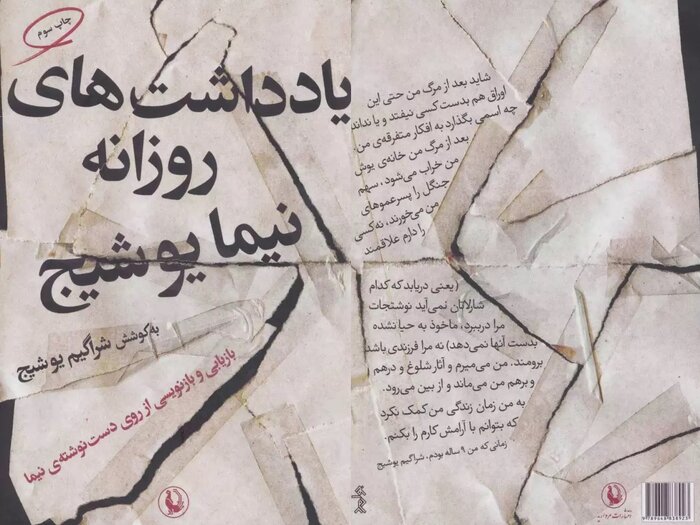 چاپ سوم
یادداشت‌های
روزانه
نیما یوشیج
به‌کوشش شراگیم یوشیج
بازیابی و بازنویسی از روی دست‌نوشته‌ی نیما
شاید بعد از مرگ من حتی این
اوراق هم بدست کسی نیفتد و یا نداند
چه اسمی بگذارد به افکار متفرقه‌ی من.
بعد از مرگ من خانه‌ی یوش
من خراب می‌شود، سهم
جنگل را پسرعموهای
من می‌خورند، نه‌کسی
را دارم علاقمند
(یعنی دریابد که کدام
شارلاتان نمی‌آید نوشتجات
مرا درببرد، ماخوذ به حیا نشده
بدست آنها نمی‌دهد) نه مرا فرزندی باشد
برومند. من می‌میرم و آثار شلوغ و درهم
و برهم من می‌ماند و از بین می‌رود.
به من زمان زندگی من کمک نکرد
که بتوانم با آرامش کارم را بکنم.
زمانی که من ۹ ساله بودم. شراگیم یوشیج